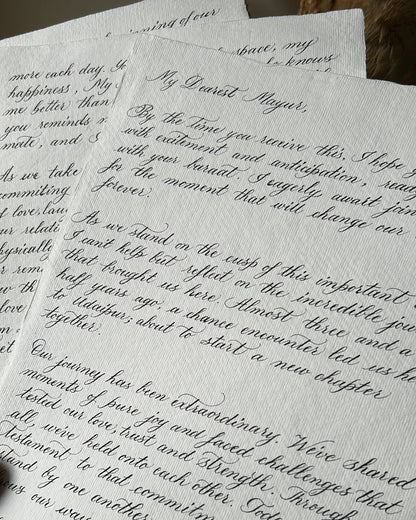 My Dearest Mayur,
By the time you receive this, I hope y
with excitement and anticipation, read
with your baraat. I eagerly await join
for the moment that will change our
forever.
As we stand on the cusp of this important
I can't help but reflect on the incredible jou
that brought us here. Almost three and a
half years ago, a chance encounter led us h
to Udaipur; about to start a new chapter
together.
Our journey has been extraordinary. We've shared
moments of pure joy and faced challenges that
tested our love, trust and strength. Through
all, we've held onto each other. Toda
testament to that commitm
stand by one another
ous our way
more each day. Yo
happiness, My
me better than
you remind m
mate, and
As we take
commiting
of love, lau
ur relati
physically
r rem
w th
love
pening of our
space, my
knows